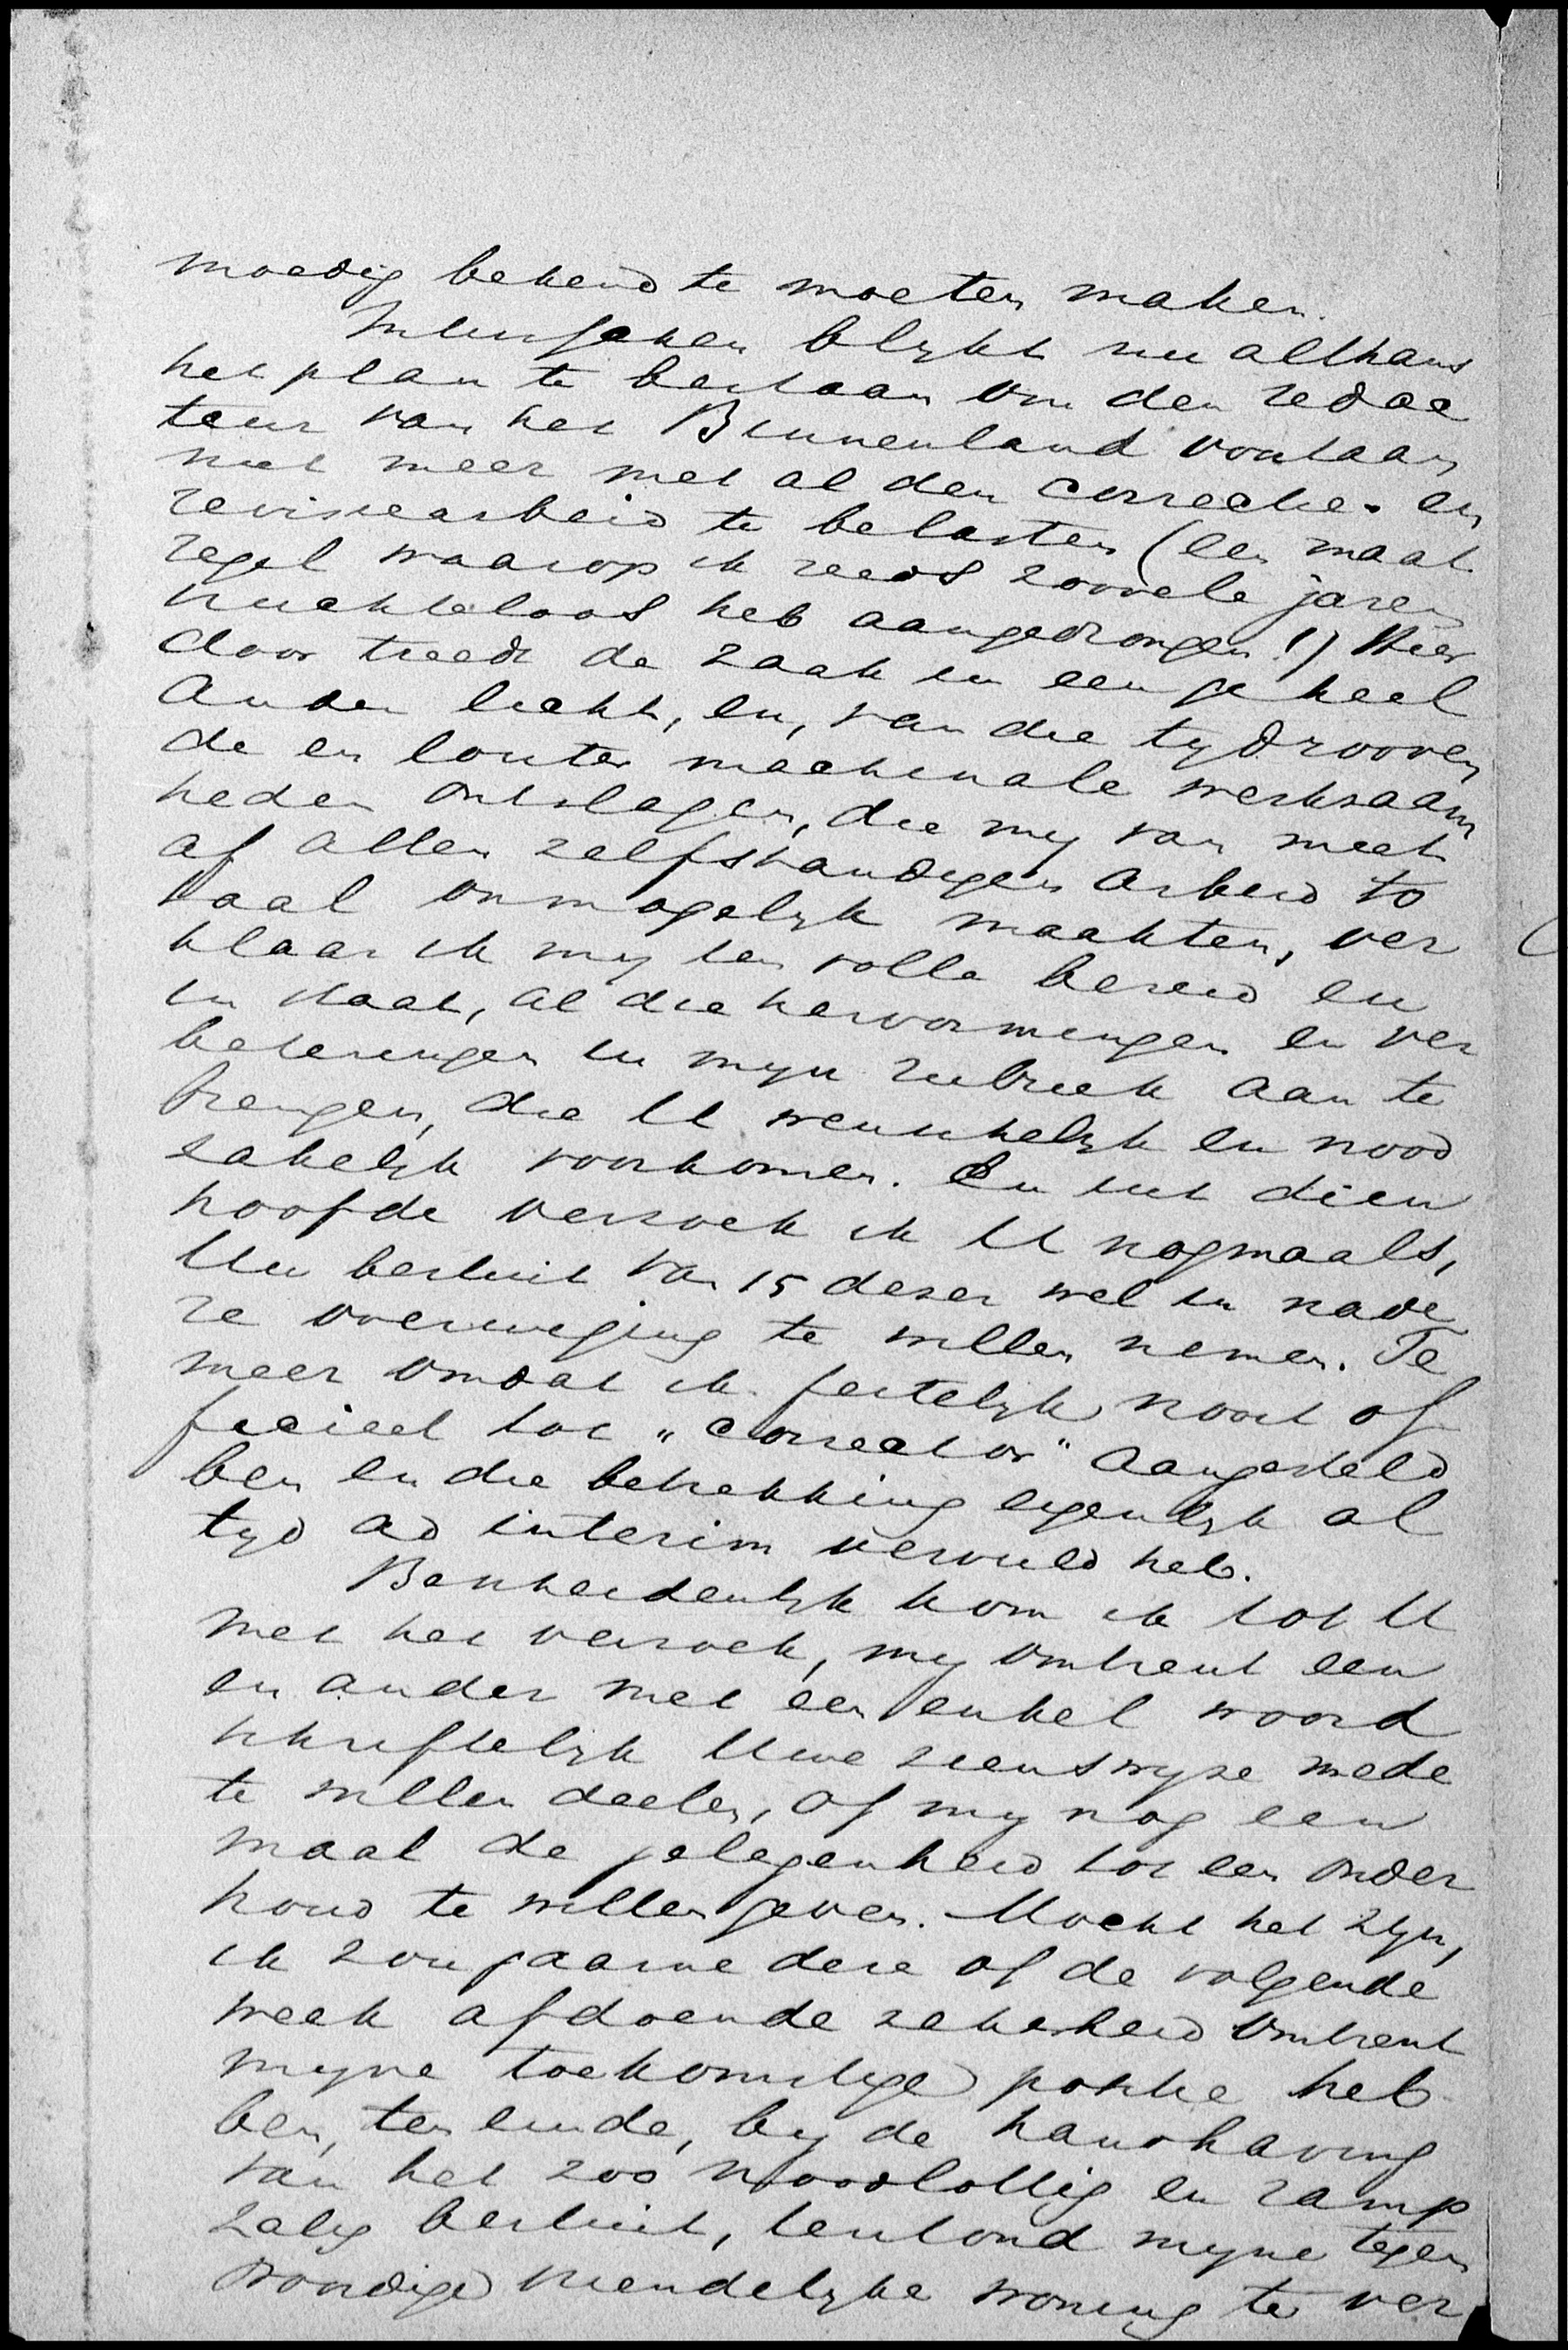 moedig bekend te moeten maken.
Intusschen blykt nu althans
het plan te bestaan om den redac
teur van het Binnenland voortaan
niet meer met al den correctie- en
revisiearbeid te belasten (een maat
regel waarop ik reeds zoovele jaren
vruchteloos heb aangedrongen!) Hier
door treedt de zaak in een geheel
ander licht, en, van die tydrooven
de en louter machinale werkzaam
heden ontslagen, die my van meet
af allen zelfstandigen arbeid to
taal onmogelyk maakten, ver
klaar ik my ten volle bereid en
in staat, al die hervormingen en ver
beteringen in myn rubriek aan te
brengen, die U wenschelyk en nood
zakelyk voorkomen. En uit dien
hoofde verzoek ik U nogmaals,
Uw besluit van 15 dezer wel in nade
re overweging te willen nemen. Te
meer omdat ik feitelyk nooit of
ficieel tot „corrector" aangesteld
ben en die betrekking eigenlyk al
tyd ad interim vervuld heb.
Bescheidenlyk kom ik tot U
met het verzoek, my omtrent een
en ander met een enkel woord
schriftelyk Uwe zienswyze mede
te willen deelen, of my nog een
maal de gelegenheid tot een onder
houd te willen geven. Mocht het zyn,
ik zou gaarne deze of de volgende
week afdoende zekerheid omtrent
myne toekomstige positie heb
ben, ten einde, by de handhaving
van het zoo noodlottig en ramp
zalig besluit, terstond myne tegen
woordige vriendelyke woning te ver